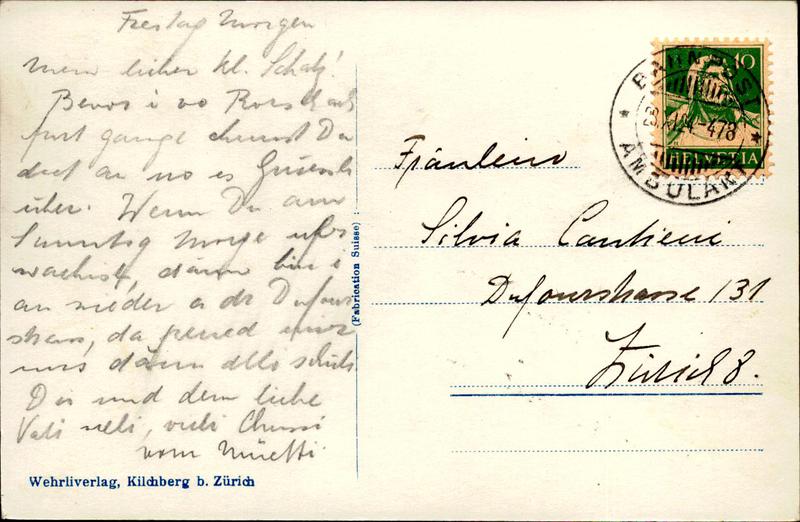 Freitag Morgen
Mein lieber kl. Schatz!
Bevor i vo Rorschach
furt gange chunst Du
det an no es Grüessli
über. Wenn Du am
Sunntag Morge ufwachist, dänn bin i
an wieder a dr Dufour
strass, da
uns dänn
Dir und dem liebe
Vati vieli Chussi
vom Müetti.
Wehrliverlag, Kilchberg b. Zürich
(Fabrication Suisse)
10
HELVETIA
BAHNPOST
AMBULANT
Fräulein
Silvia Cantieni
Dufourstrasse 131
Zürich 8.